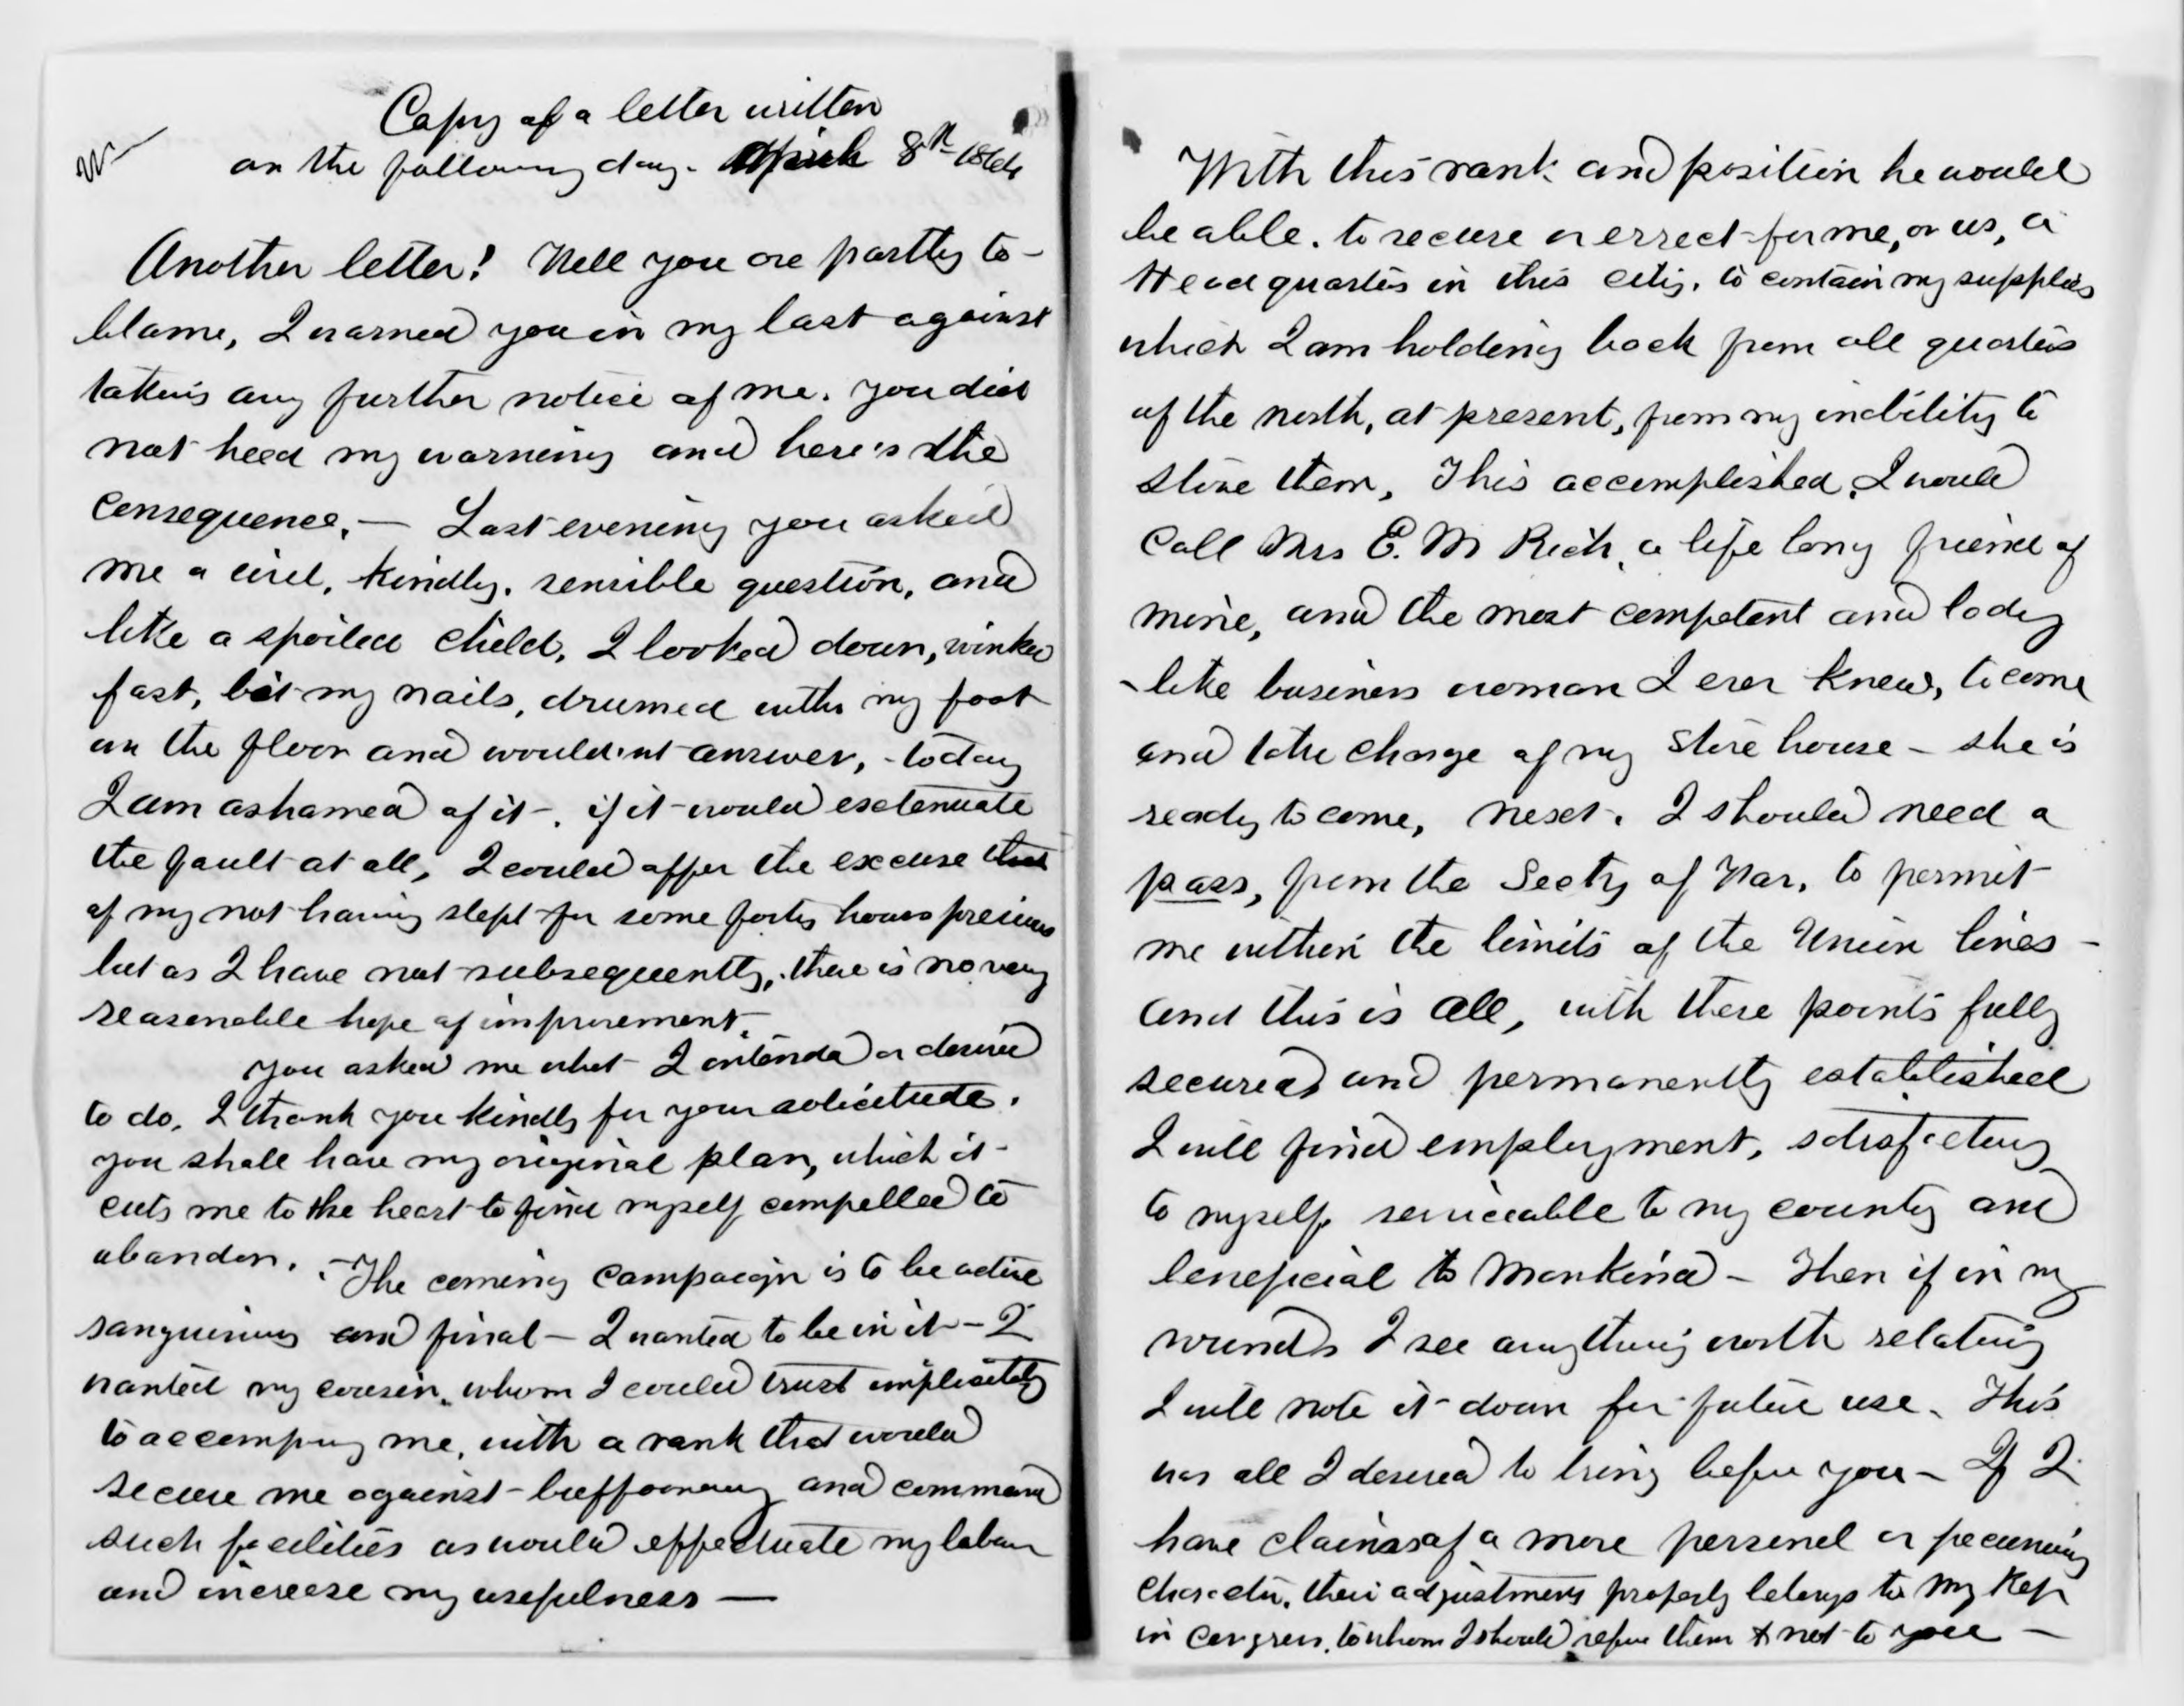 Copy of a letter written
on the following day. April 8th 1864
Another letter! Well you are partly to
blame, I warned you in my last against
taking any further notice of me. you did
not heed my warning and here's the
consequence. — Last evening you asked
me a civil, kindly, sensible question, and
like a spoiled child, I looked down, winked
fast, bit my nails, drumed with my foot
on the floor and would'nt answer, - today
I am ashamed of it -. if it would exctenuate
the fault at all, I could offer the excuse that
of my not having slept for some forty hours previous
but as I have not subsequently, there is no very
reasonable hope of improvement.
you asked me what I intended or desired
to do. I thank you kindly for your solicitude.
you shall have my original plan, which it
cuts me to the heart to find myself compelled to
abandon. The coming campaign is to be active
sanguinary and final — I wanted to be in it — I
wanted my cousin, whom I could trust implicitly
to accompany me, with a rank that would
secure me against buffoonery and command
such facilities as would effectuate my labor
and increase my usefulness —
With this rank and position he would
be able. to secure or errect for me, or us, a
Head quarters in this city. to contain my supplies
which I am holding back from all quarters
of the north, at present, from my inability to
store them, This accomplished, I would
call Mrs E. M Rich, a life long friend of
mine, and the most competent and lady
-like business woman I ever knew, to come
and take charge of my store house - she is
ready to come, next. I should need a
pass, from the Secty of War, to permit
me within the limits of the Union lines -
and this is all, with these points fully
secured and permanently established
I will find employment, satisfactory
to myself serviceable to my country and
beneficial to Mankind - Then if in my
rounds I see anything worth relating
I will note it down for future use. This
was all I desired to bring before you - If I
have claims of a more personal or pecuniary
character, their adjustment properly belongs to my Rep
in Congress, to whom I should refer them & not to you —